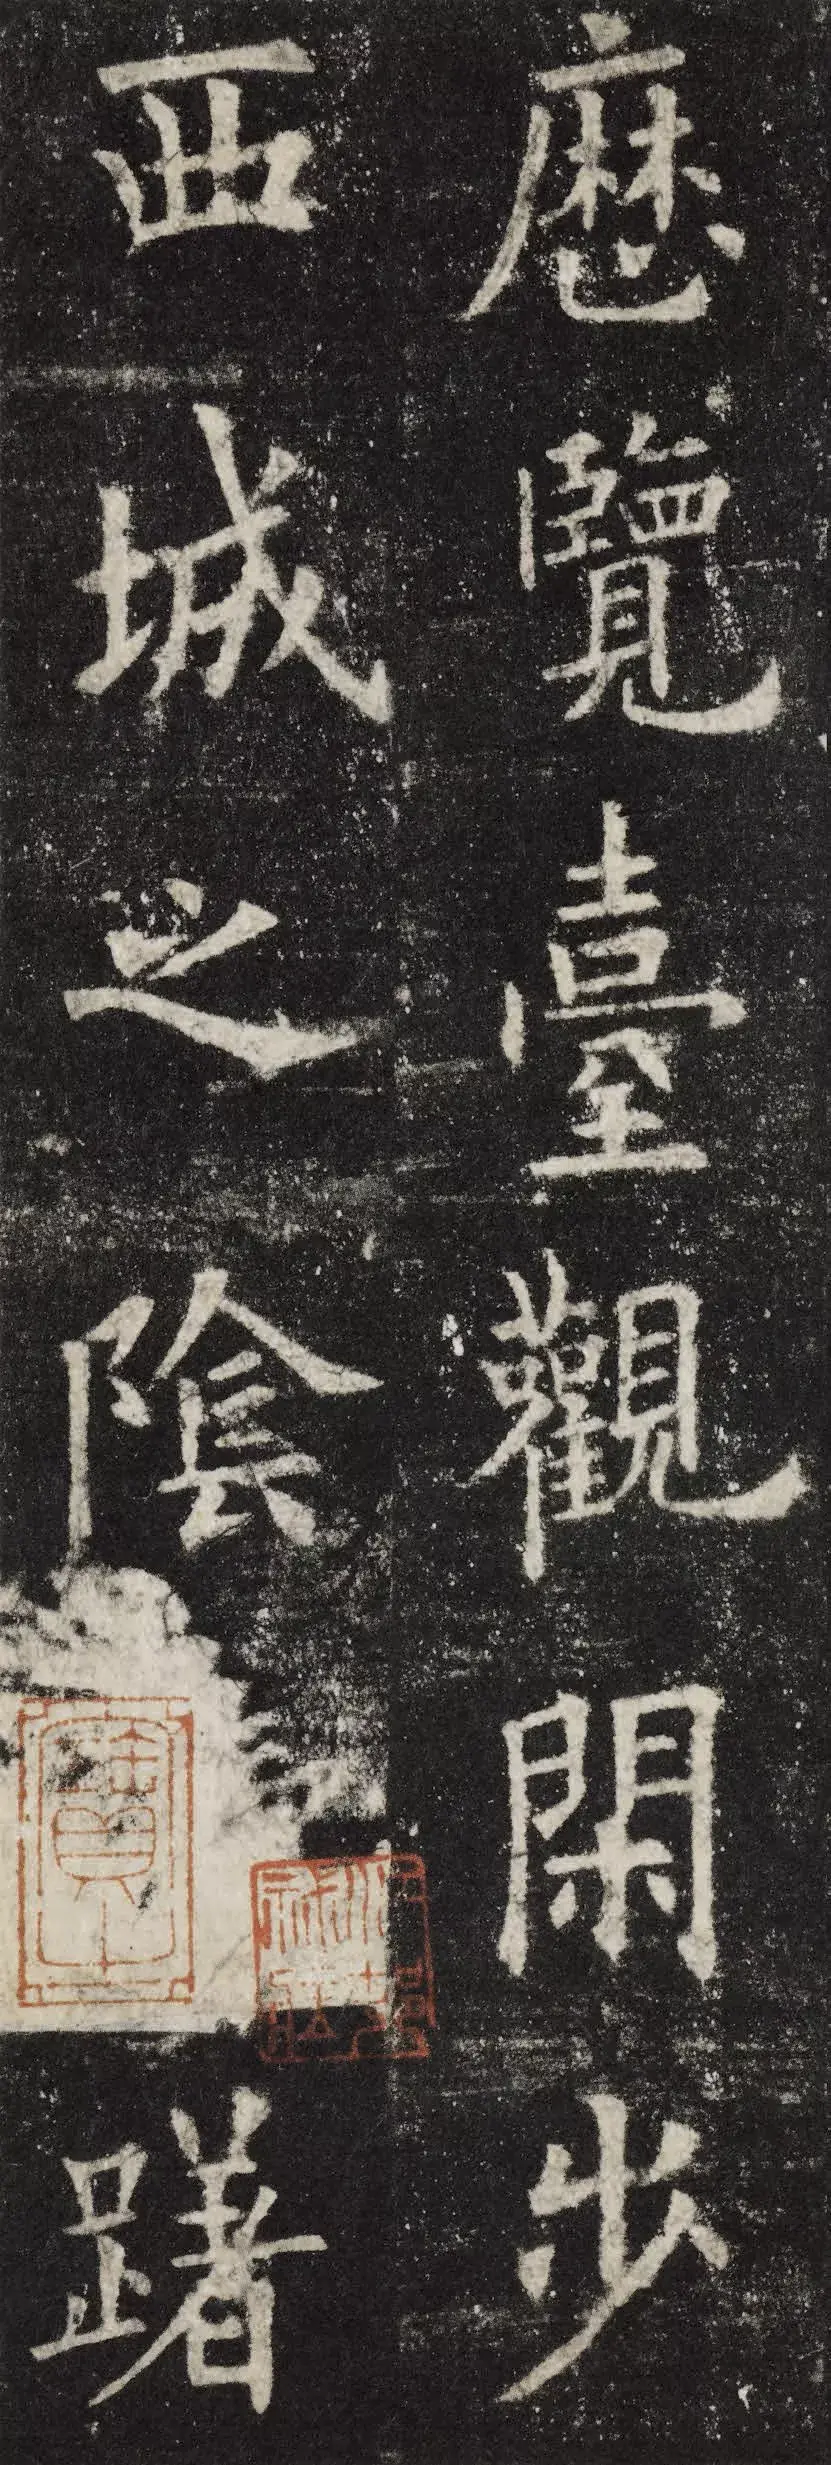 歷覽臺觀閑步
西城之陰躊